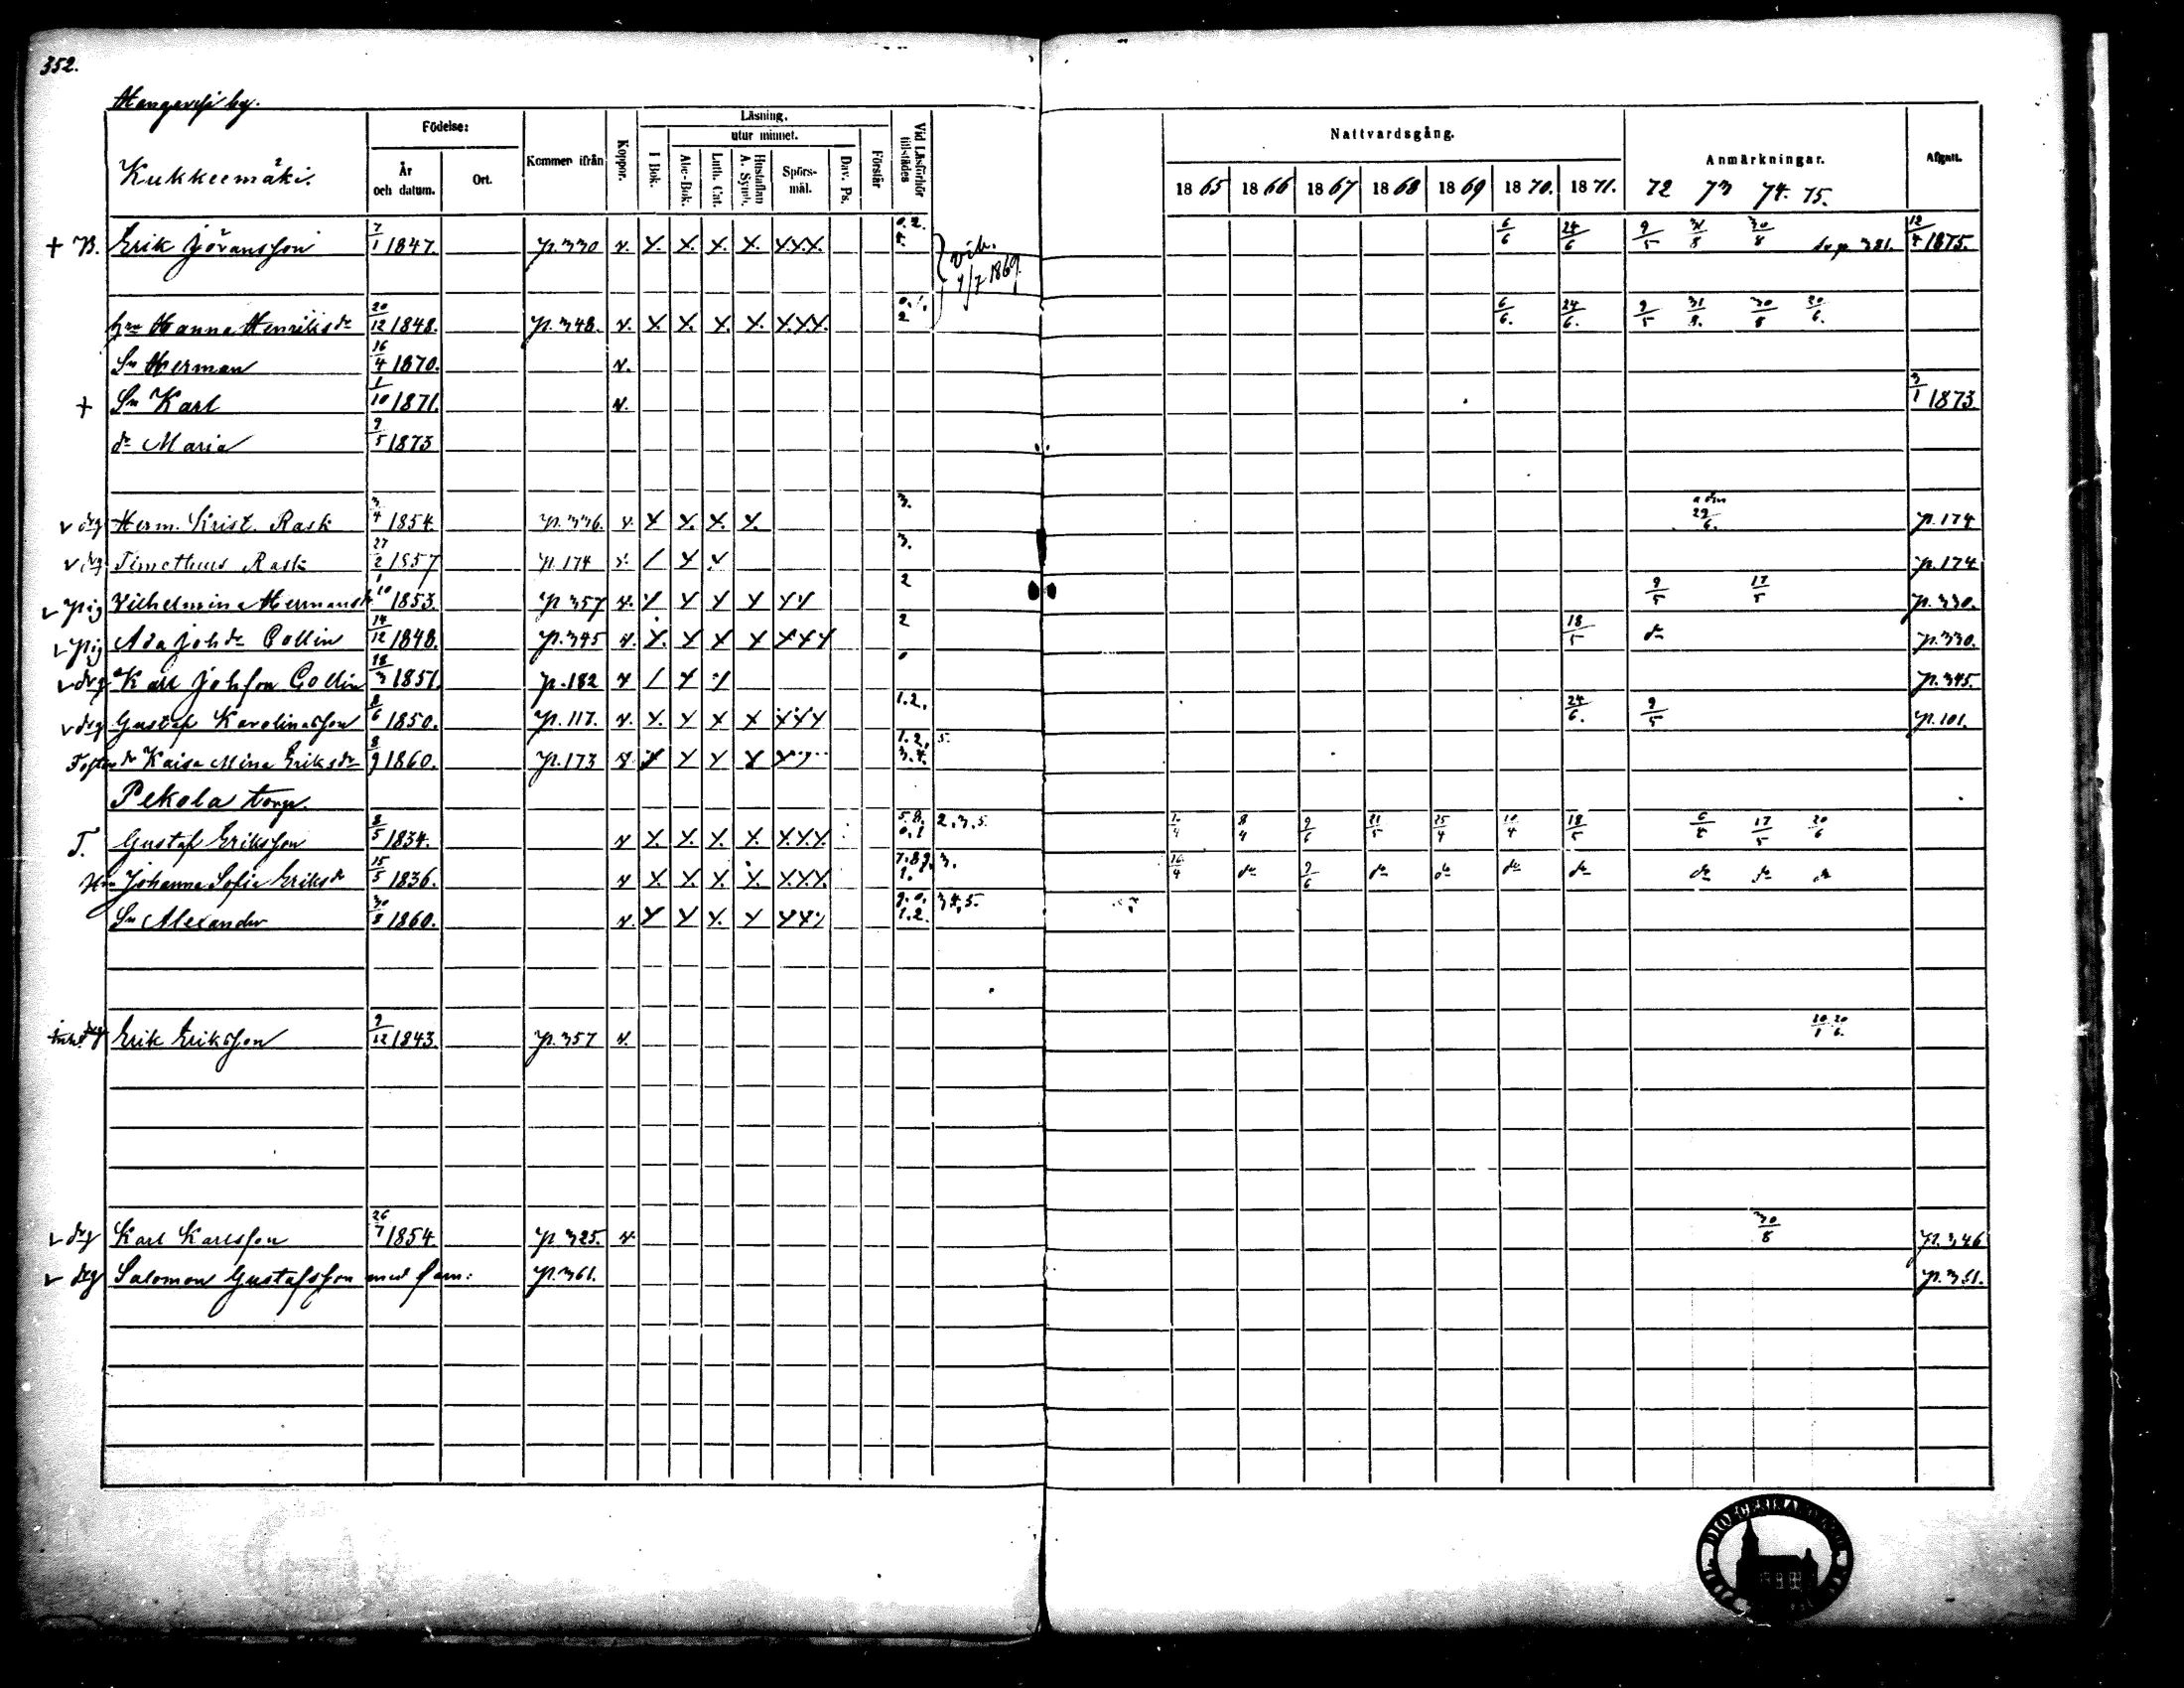 352.
by.
Kukkeemäki.
Födelse:
År och datum.
Ort.
Kommer ifrån
Koppor.
Läsning.
I Bok.
utur minnet.
Abc-Bok.
Luth. Cat.
Hustaflan A. Symb.
Spörs-mål.
Dav. Ps.
Förstår
Vid Läsförhör tillstädes
Nattvardsgång.
1865 1866 1867 1868 1869 1870. 1871.
Anmärkningar.
72 73 74. 75.
Afgått.
+ B. Erik Jöransson 7/1 1847. p. 330 v. X. X. X. X. XXX. 0.2. 6/6 24/6 9/5 31/8 30/8 381. 12/4 1875.
vih. 4/7 1869.
Hanna Henriksdr 20/12 1848. p. 348. v. X. X. X. X. XXX. 6/6. 24/6. 9/5 31/8. 30/8 20/6.
Sn Herman 16/4 1870. v.
+ Sn Karl 1/10 1871. v. 3/1 1873
dr Maria 9/5 1873
v drg Herm. Krist. Rask 3/4 1854. p. 336. v. X X. X. X. 3. adm 29/6. p. 174
v drg Timotheus Rask 27/2 1857 p. 174 v. / X 3. p. 174
v pig Vilhelmina Hermansdr 1/10 1853. p 357 v. X X X XX 2 9/5 17/5 p. 330.
v pig Ada Johdr Collin 14/12 1848. p. 345 v. X. X X X XXX 2 18/5 dr p. 330.
v drg Karl Johsson Collin 18/3 1851. p. 182 v / X 0 p. 345.
v drg Gustaf Karolinasson 8/6 1850. p. 117. v. X. X X X XXX 1.2. 24/6. 9/5 p. 101.
Foster dr Kaisa Mina Eriksdr 8/9 1860. p. 173 v. X X X X 1.2. 3.4. 5.
Pekola torp.
T. Gustaf Eriksson 8/5 1834. v X. X. X. X. XXX. 5.8. 0.1 2.3.5. 8/4 9/6 21/5 25/4 10/4 18/5 17/5 20/6
Hu Johanna Sofia Eriksdr 15/5 1836. v X. X. X. X. XXX. 7.8.9. 1. 3. 16/4 dr 9/6 dr dr dr dr dr dr dr
Sn Alexander 30/8 1860. v. X X X. X XX 9.0. 1.2. 3.4.5.
drg Erik Eriksson 9/12 1843. p. 357 v. 10/1 20/6.
v drg Karl Karlsson 26/7 1854 p 325. v. 30/8 p. 346
v drg Salomon Gustafsson med fam: p. 361. p. 361.